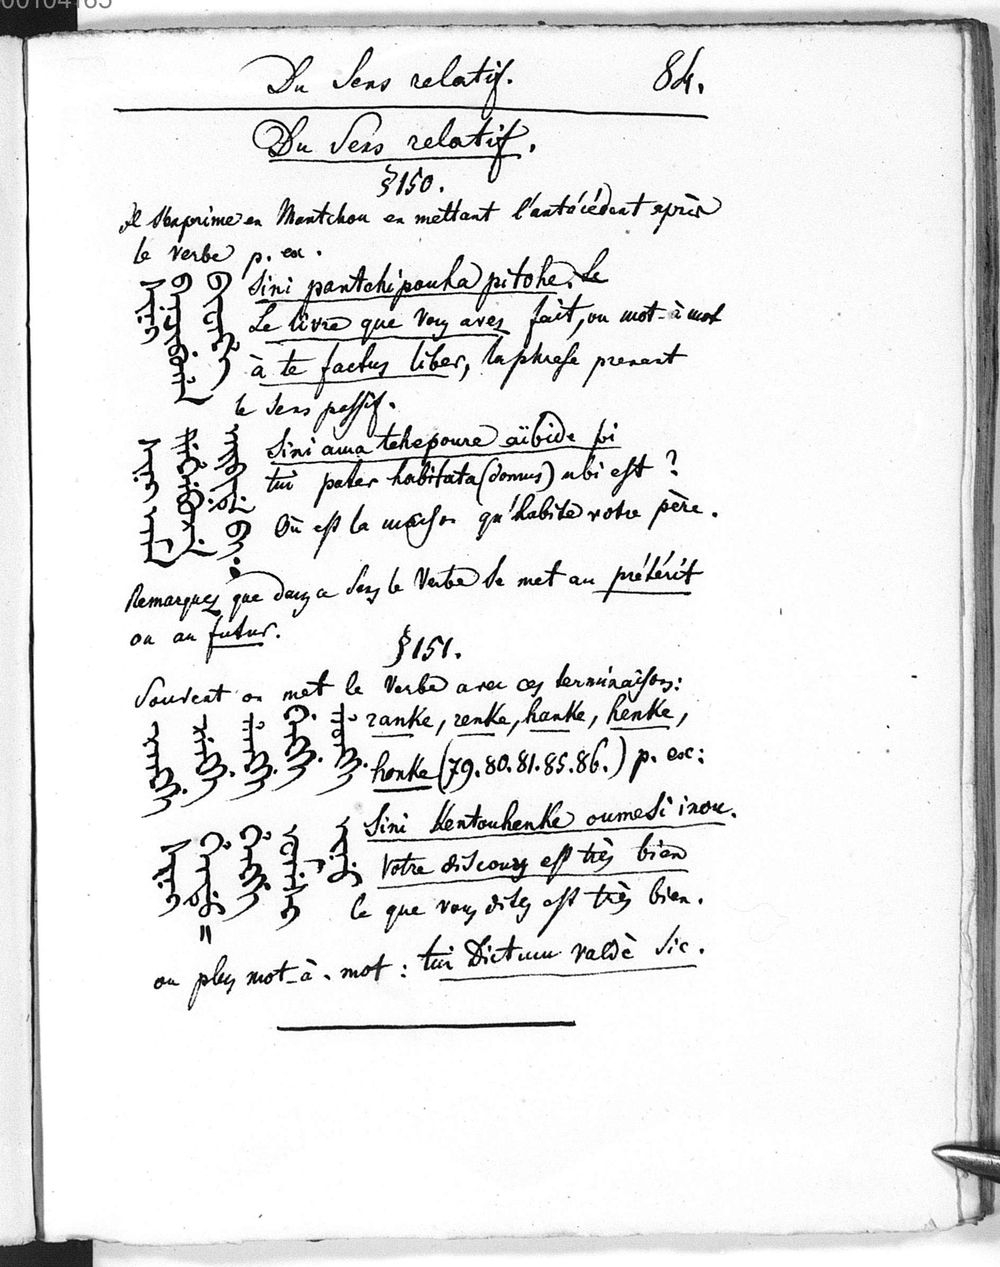 Du Sens relatif. 84.
Du Sens relatif.
§150.
Il s'exprime en Mantchou en mettant l'antécédent après
le verbe p. ex.
Sini pantchipouha pitohe. Le
Le livre que vous avez fait, ou mot-à-mot
à te factus liber, la phrase prenant
le sens passif.
Sini ama tehepoure aïbide pi
tui pater habitata (domus) ubi est ?
Où est la maison qu'habite votre père.
Remarquez que dans ce sens le Verbe se met au prétérit
ou au futur.
§151.
Souvent on met le Verbe avec ces terminaisons:
ranke, renke, hanke, henke,
honke (79.80.81.85.86.) p. ex:
Sini Kentouhenke oumesi inou.
Votre discours est très bien
ce que vous dites est très bien.
ou plus mot-à-mot : tui Dictum valdè sic.